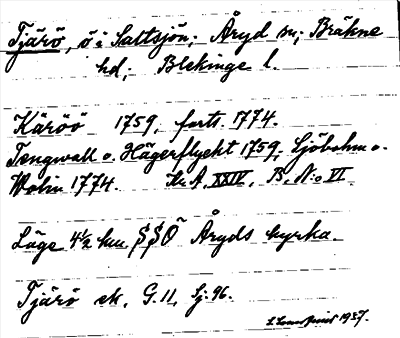 Tjärö, ö i Saltsjön; Åryd sn; Bräkne
hd; Blekinge l.
Käröö 1759, forts. 1774.
Tengwall o. Hägerflycht 1759, Sjöbohm o.
Wolin 1774. Kr. A. XXIV, B, N:o VI.
Läge 4½ km SSO Åryds kyrka.
Tjärö ek. G. 11, Sj: 96.
1937.